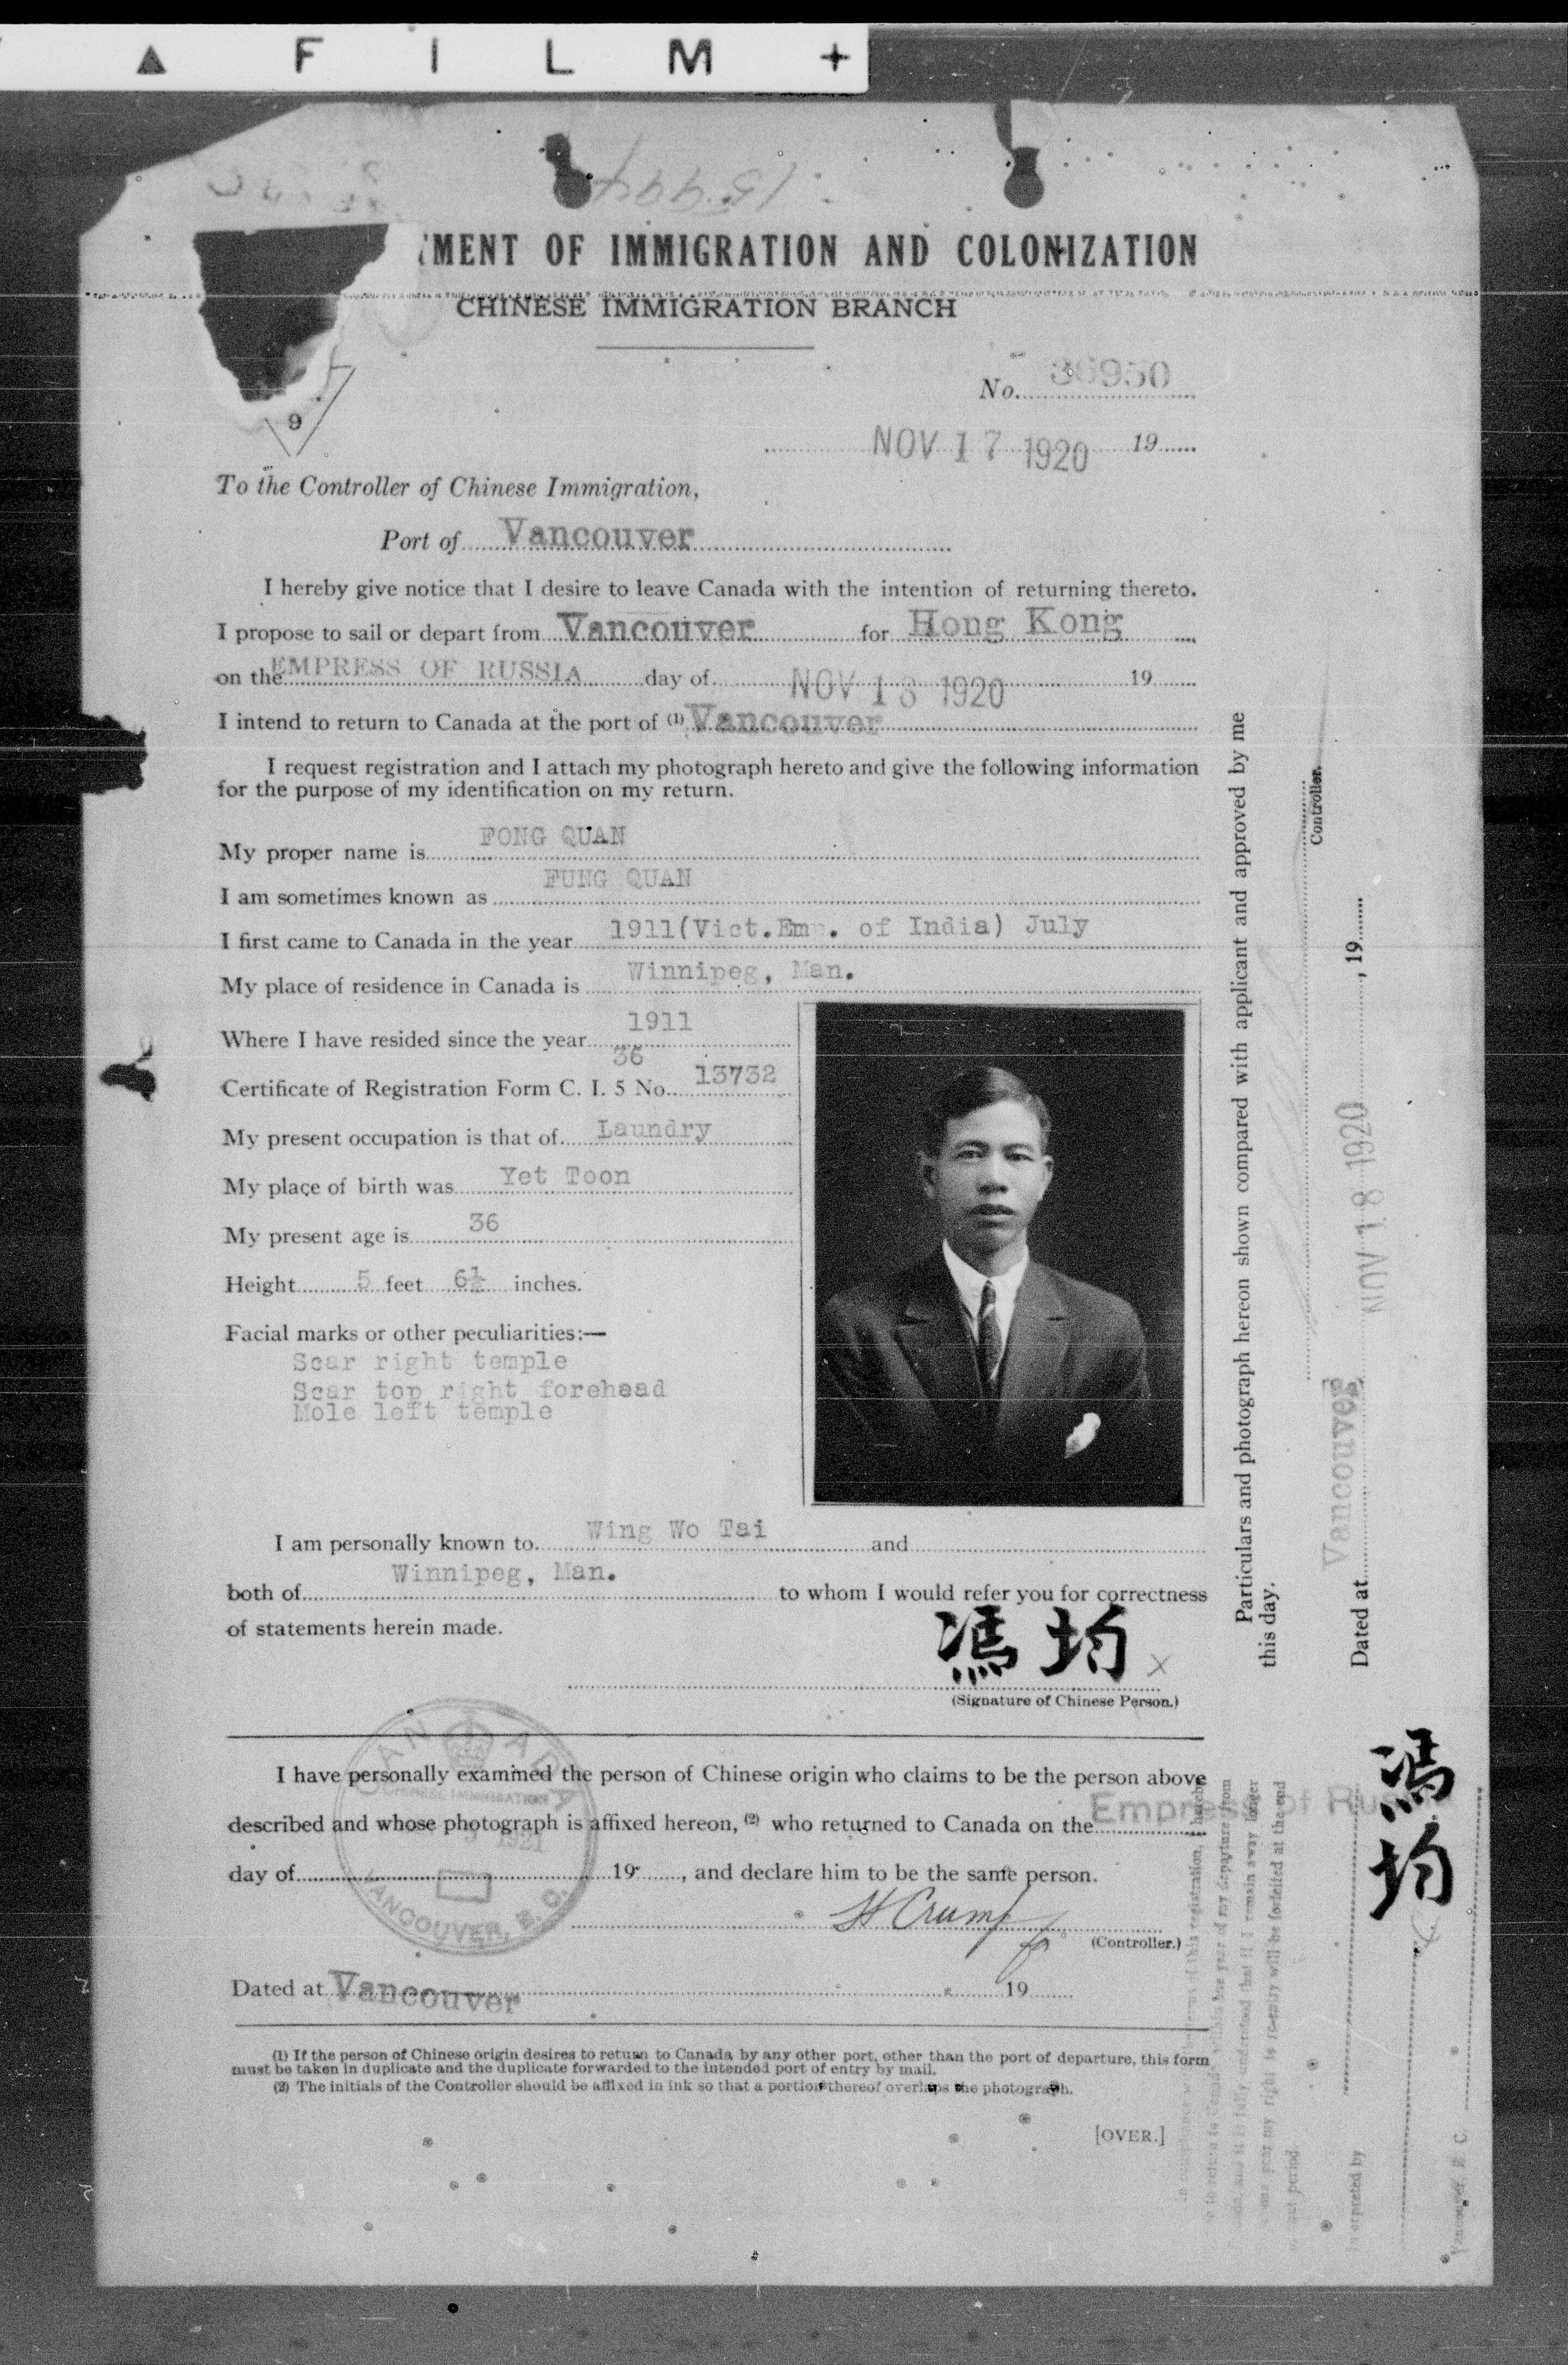 F I L M +
MENT OF IMMIGRATION AND COLONIZATION
CHINESE IMMIGRATION BRANCH
No. 36950
9
NOV 17 1920 19
To the Controller of Chinese Immigration,
Port of Vancouver
I hereby give notice that I desire to leave Canada with the intention of returning thereto.
I propose to sail or depart from Vancouver for Hong Kong
on the EMPRESS OF RUSSIA day of NOV 18 1920 19
I intend to return to Canada at the port of (1) Vancouver
I request registration and I attach my photograph hereto and give the following information
for the purpose of my identification on my return.
My proper name is FONG QUAN
I am sometimes known as FUNG QUAN
I first came to Canada in the year 1911(Vict.Em . of India) July
My place of residence in Canada is Winnipeg, Man.
Where I have resided since the year 1911
36
Certificate of Registration Form C. I. 5 No. 13732
My present occupation is that of Laundry
My place of birth was Yet Toon
My present age is 36
Height 5 feet 6½ inches.
Facial marks or other peculiarities:—
Scar right temple
Scar top right forehead
Mole left temple
I am personally known to Wing Wo Tai and
both of Winnipeg, Man. to whom I would refer you for correctness
of statements herein made.
馮均 X
(Signature of Chinese Person.)
I have personally examined the person of Chinese origin who claims to be the person above
described and whose photograph is affixed hereon, (2) who returned to Canada on the Empress of Russia
day of 19 , and declare him to be the same person.
H Crump
(Controller.)
Dated at Vancouver 19
(1) If the person of Chinese origin desires to return to Canada by any other port, other than the port of departure, this form
must be taken in duplicate and the duplicate forwarded to the intended port of entry by mail.
(2) The initials of the Controller should be affixed in ink so that a portion thereof overlaps the photograph.
[OVER.]
CANADA
CHINESE IMMIGRATION
VANCOUVER, B. C.
Particulars and photograph hereon shown compared with applicant and approved by me
this day.
Controller.
Dated at Vancouver NOV 18 1920 , 19
馮均